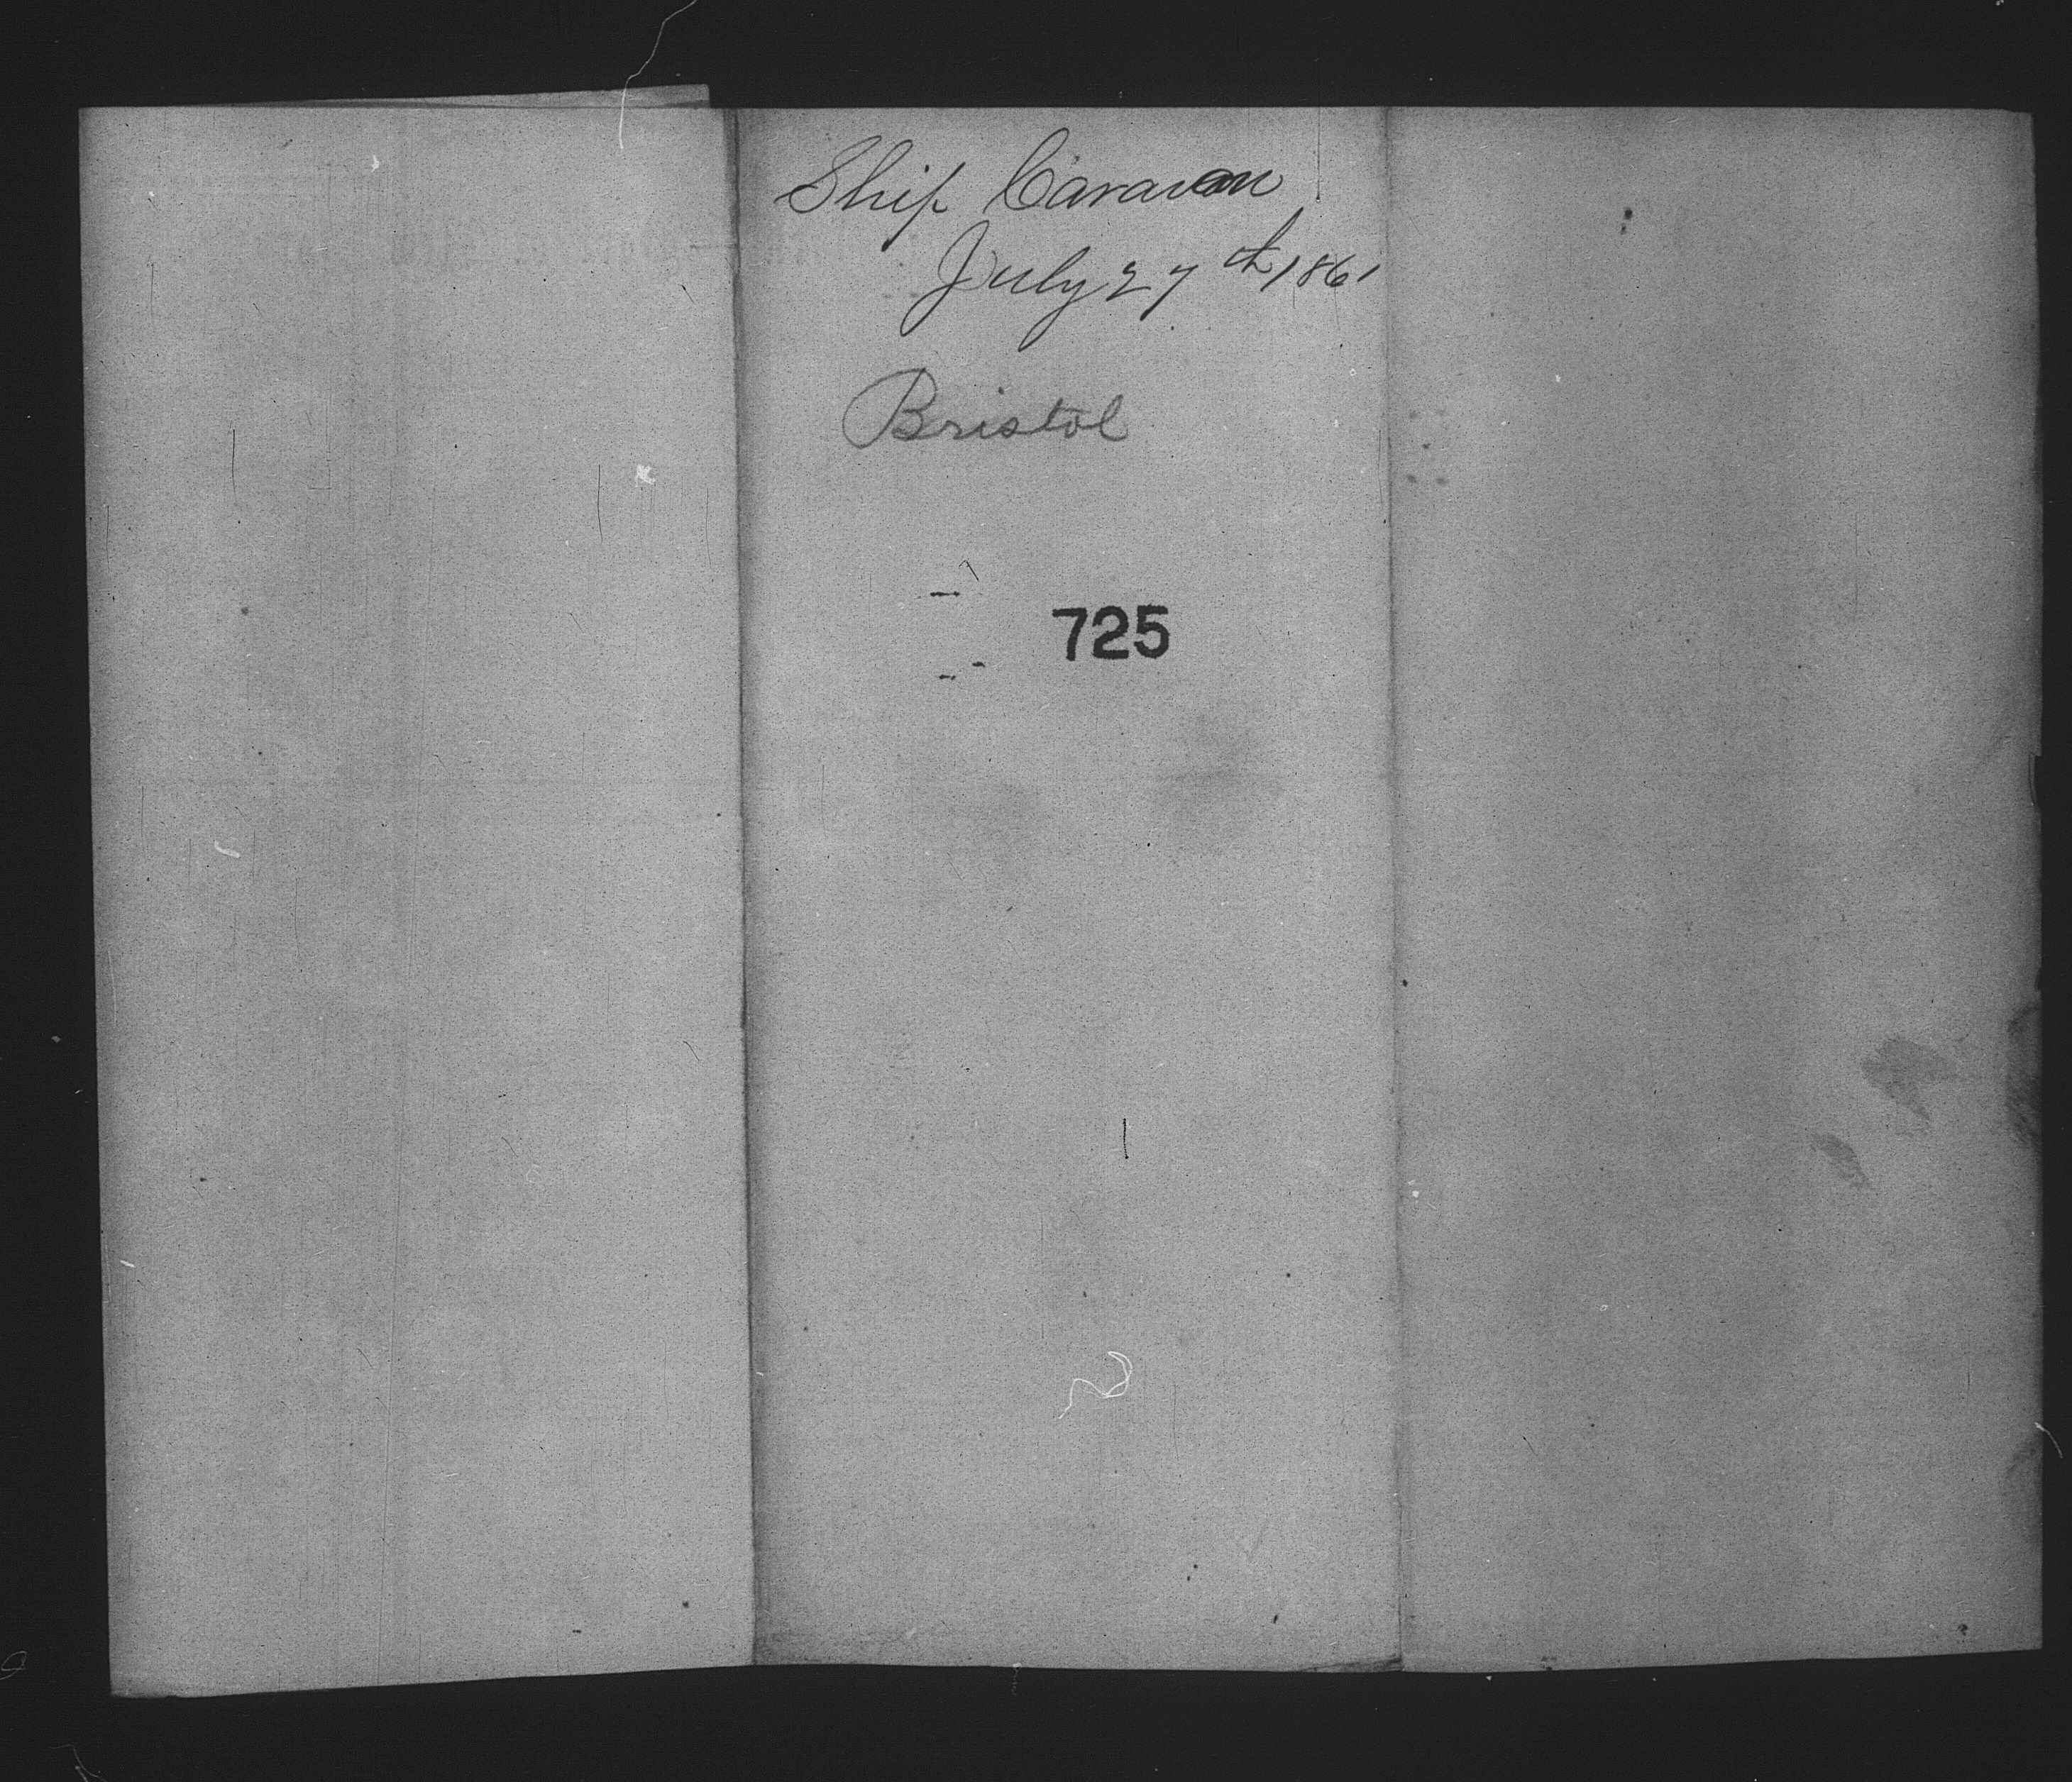 Ship Caravan
July 27th 1861
Bristol
725